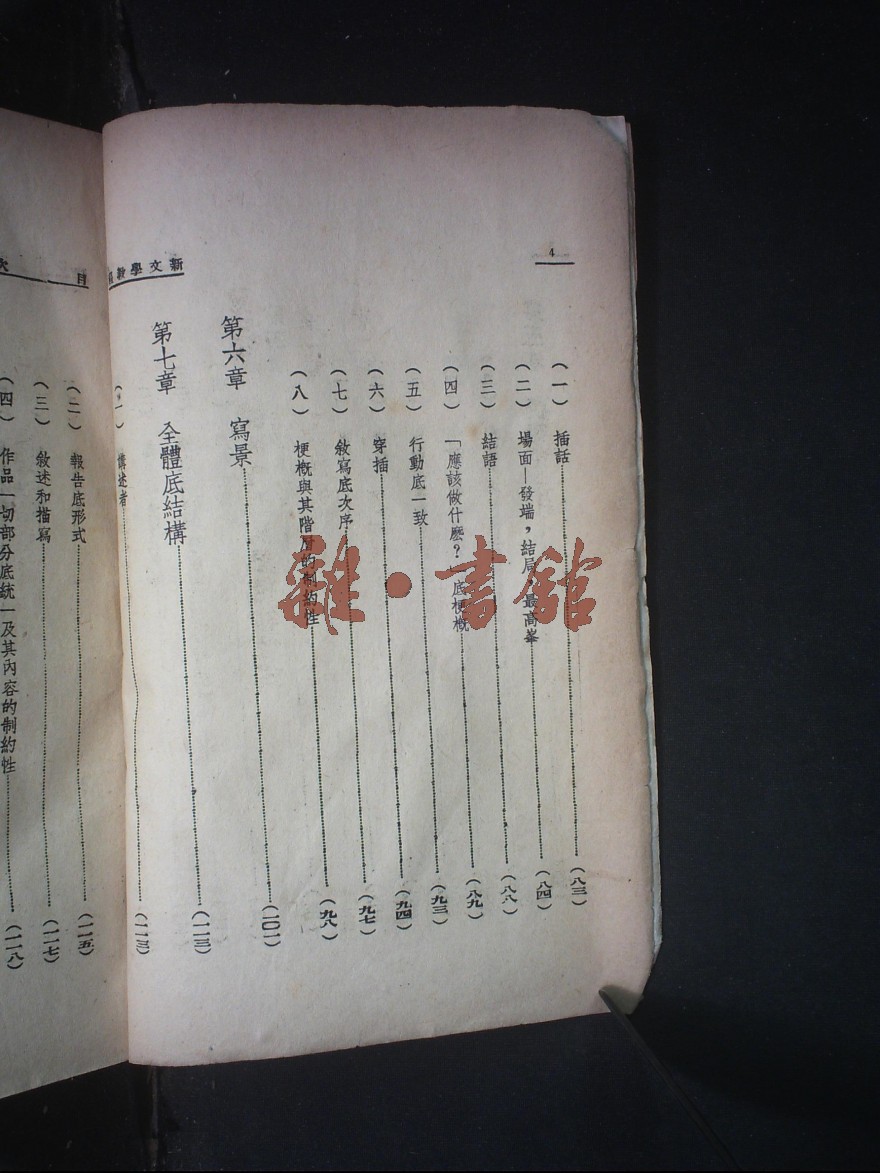 4
新文學教
(一) 插話………(八三)
(二) 場面—發端，結局，最高峯………(八四)
(三) 結語………(八八)
(四) 「應該做什麽？」底梗概………(八九)
(五) 行動底一致………(九三)
(六) 穿插………(九四)
(七) 敘寫底次序………(九七)
(八) 梗概與其階層的制約性………(九八)
第六章 寫景………(一〇一)
第七章 全體底結構………(一一三)
(一) 講述者………(一一三)
目 次
(二) 報告底形式………(一一五)
(三) 敘述和描寫………(一一七)
(四) 作品一切部分底統一及其內容的制約性………(一一八)
雜·書館